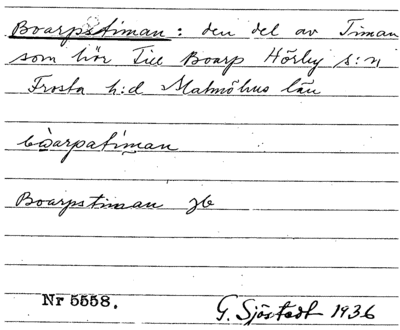 Boarpstiman: den del av Timan
som hör till Boarp Hörby s:n
Frosta h:d Malmöhus län
bòarpatiman
Boarpstiman jb
Nr 5558.
G. Sjöstedt 1936